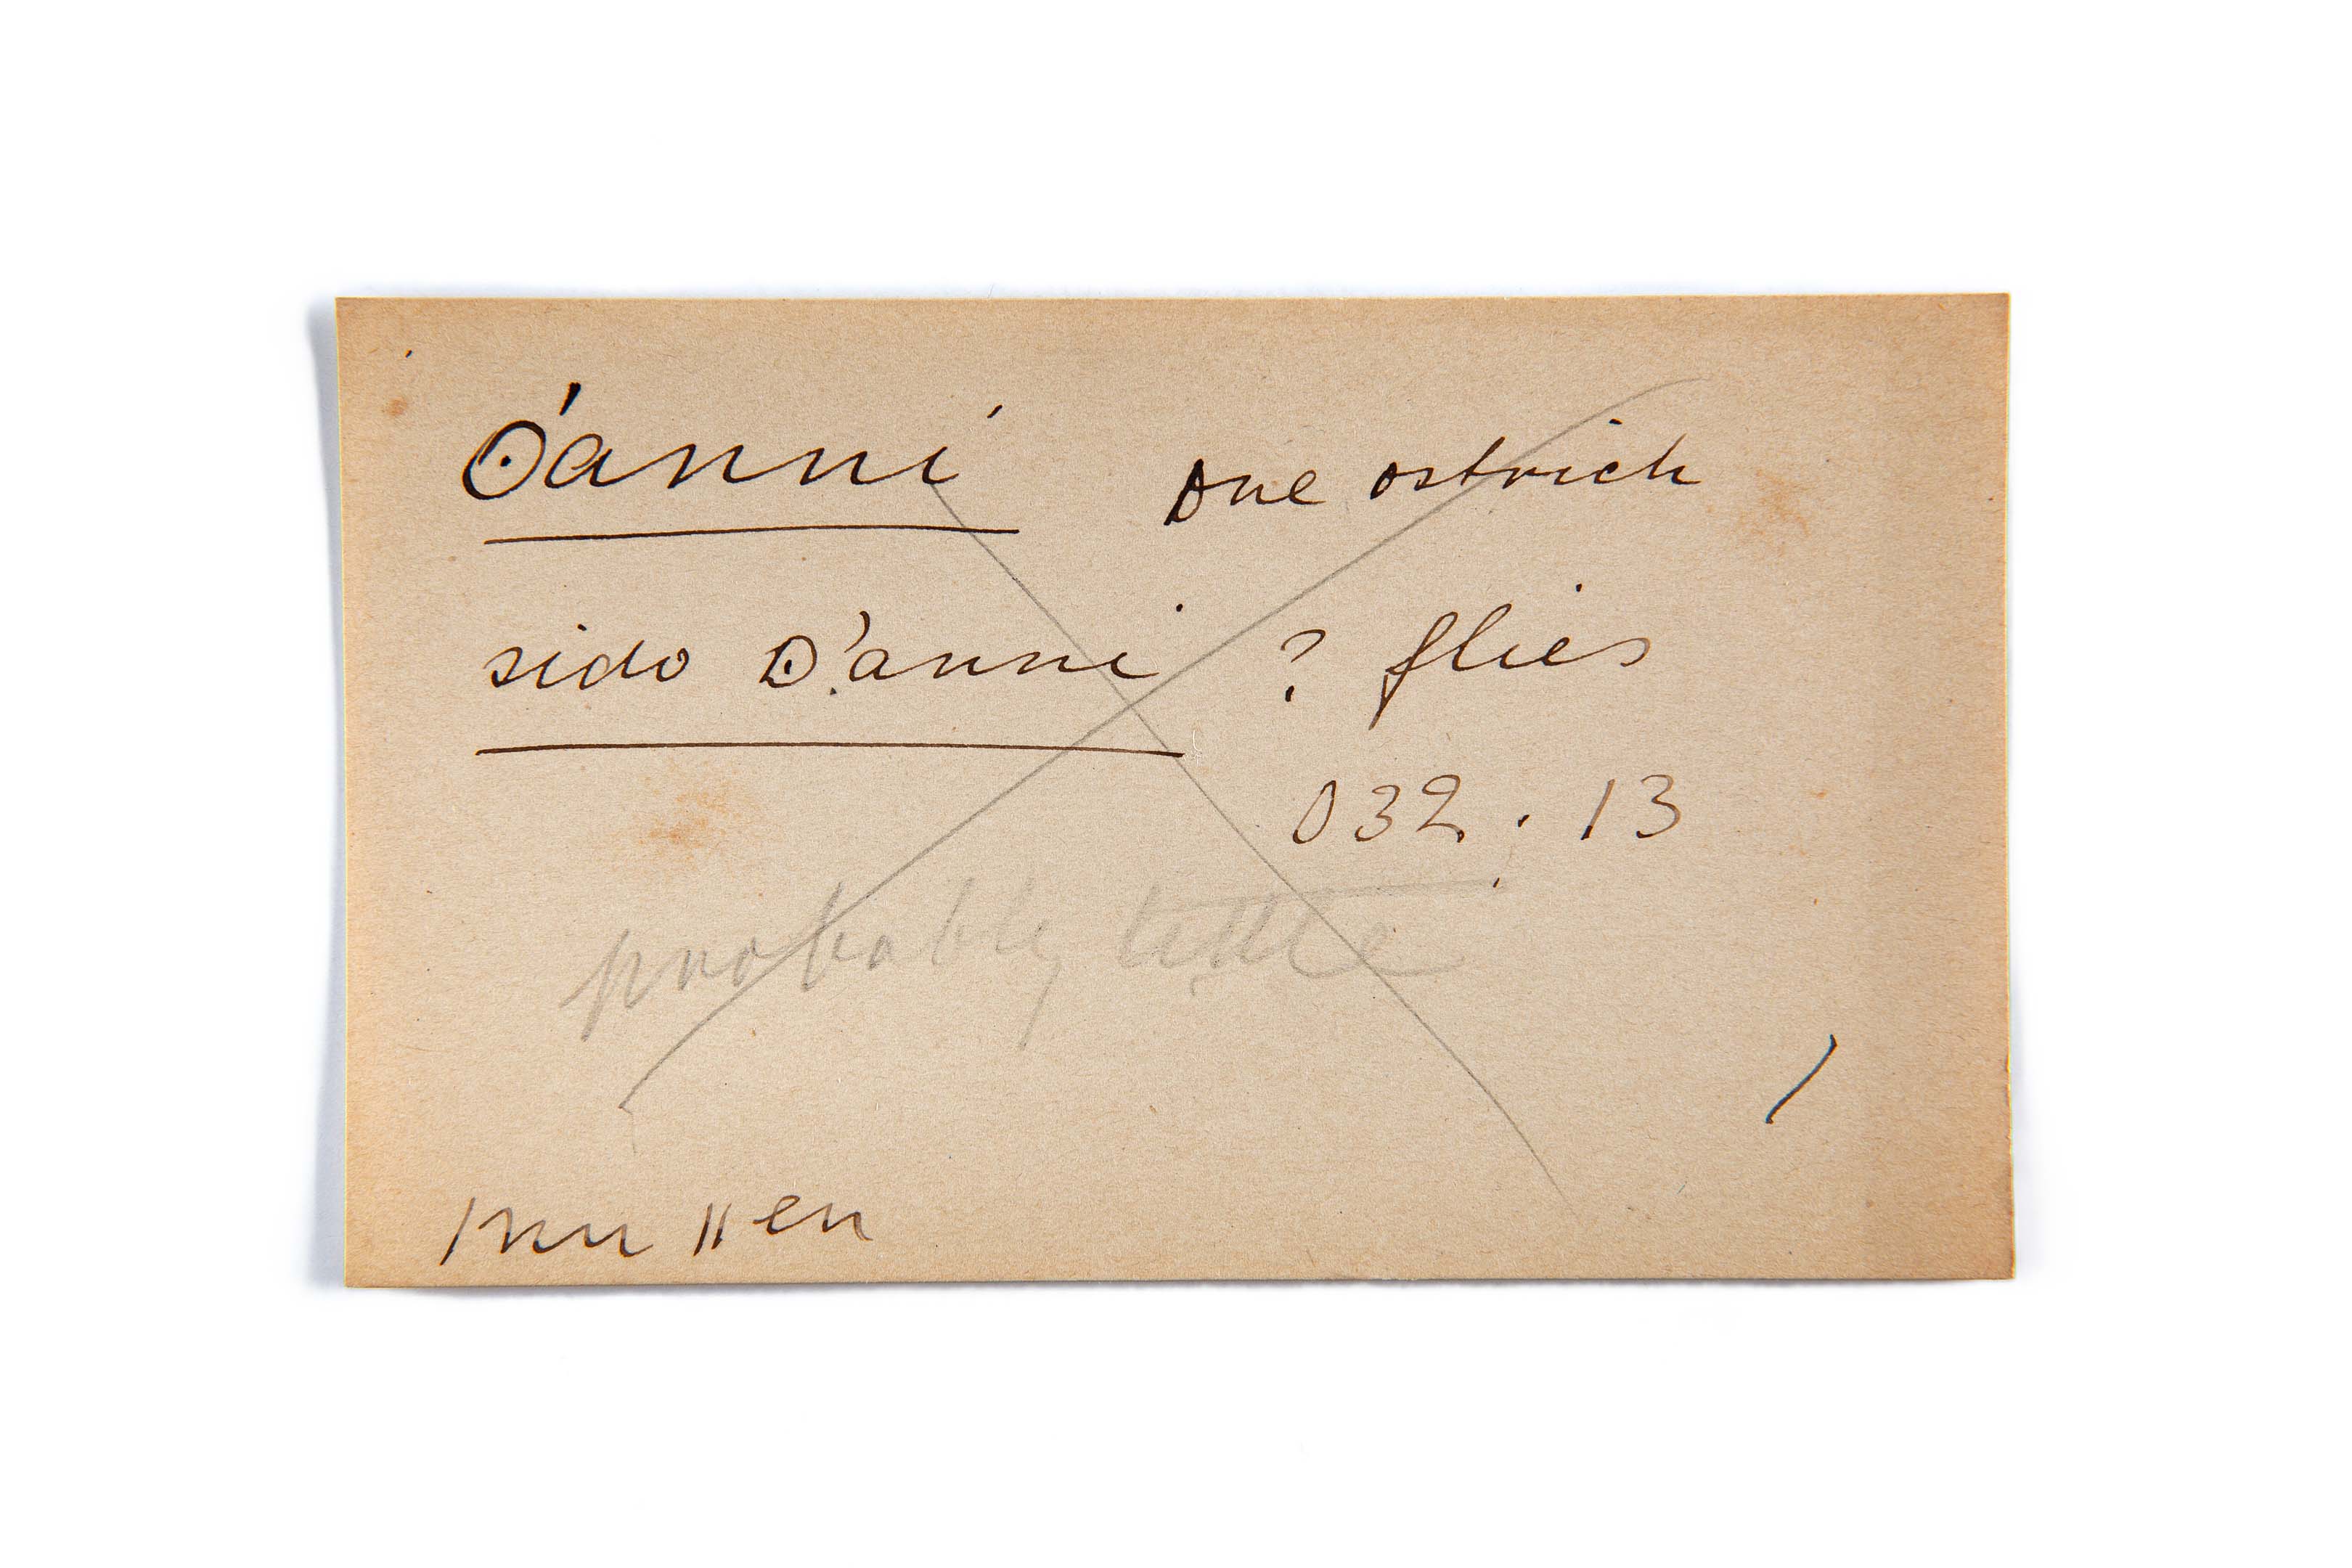 ʘ'anni one ostrich
sido ʘ'anni ? flies
032 . 13
probably little
/
|nu ||en